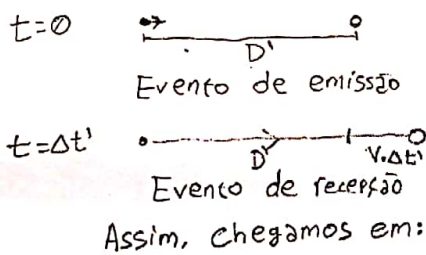 t=0
D'
Evento de emissão
t=Δt'
D'
V.Δt'
Evento de recepção
Assim, chegamos em: